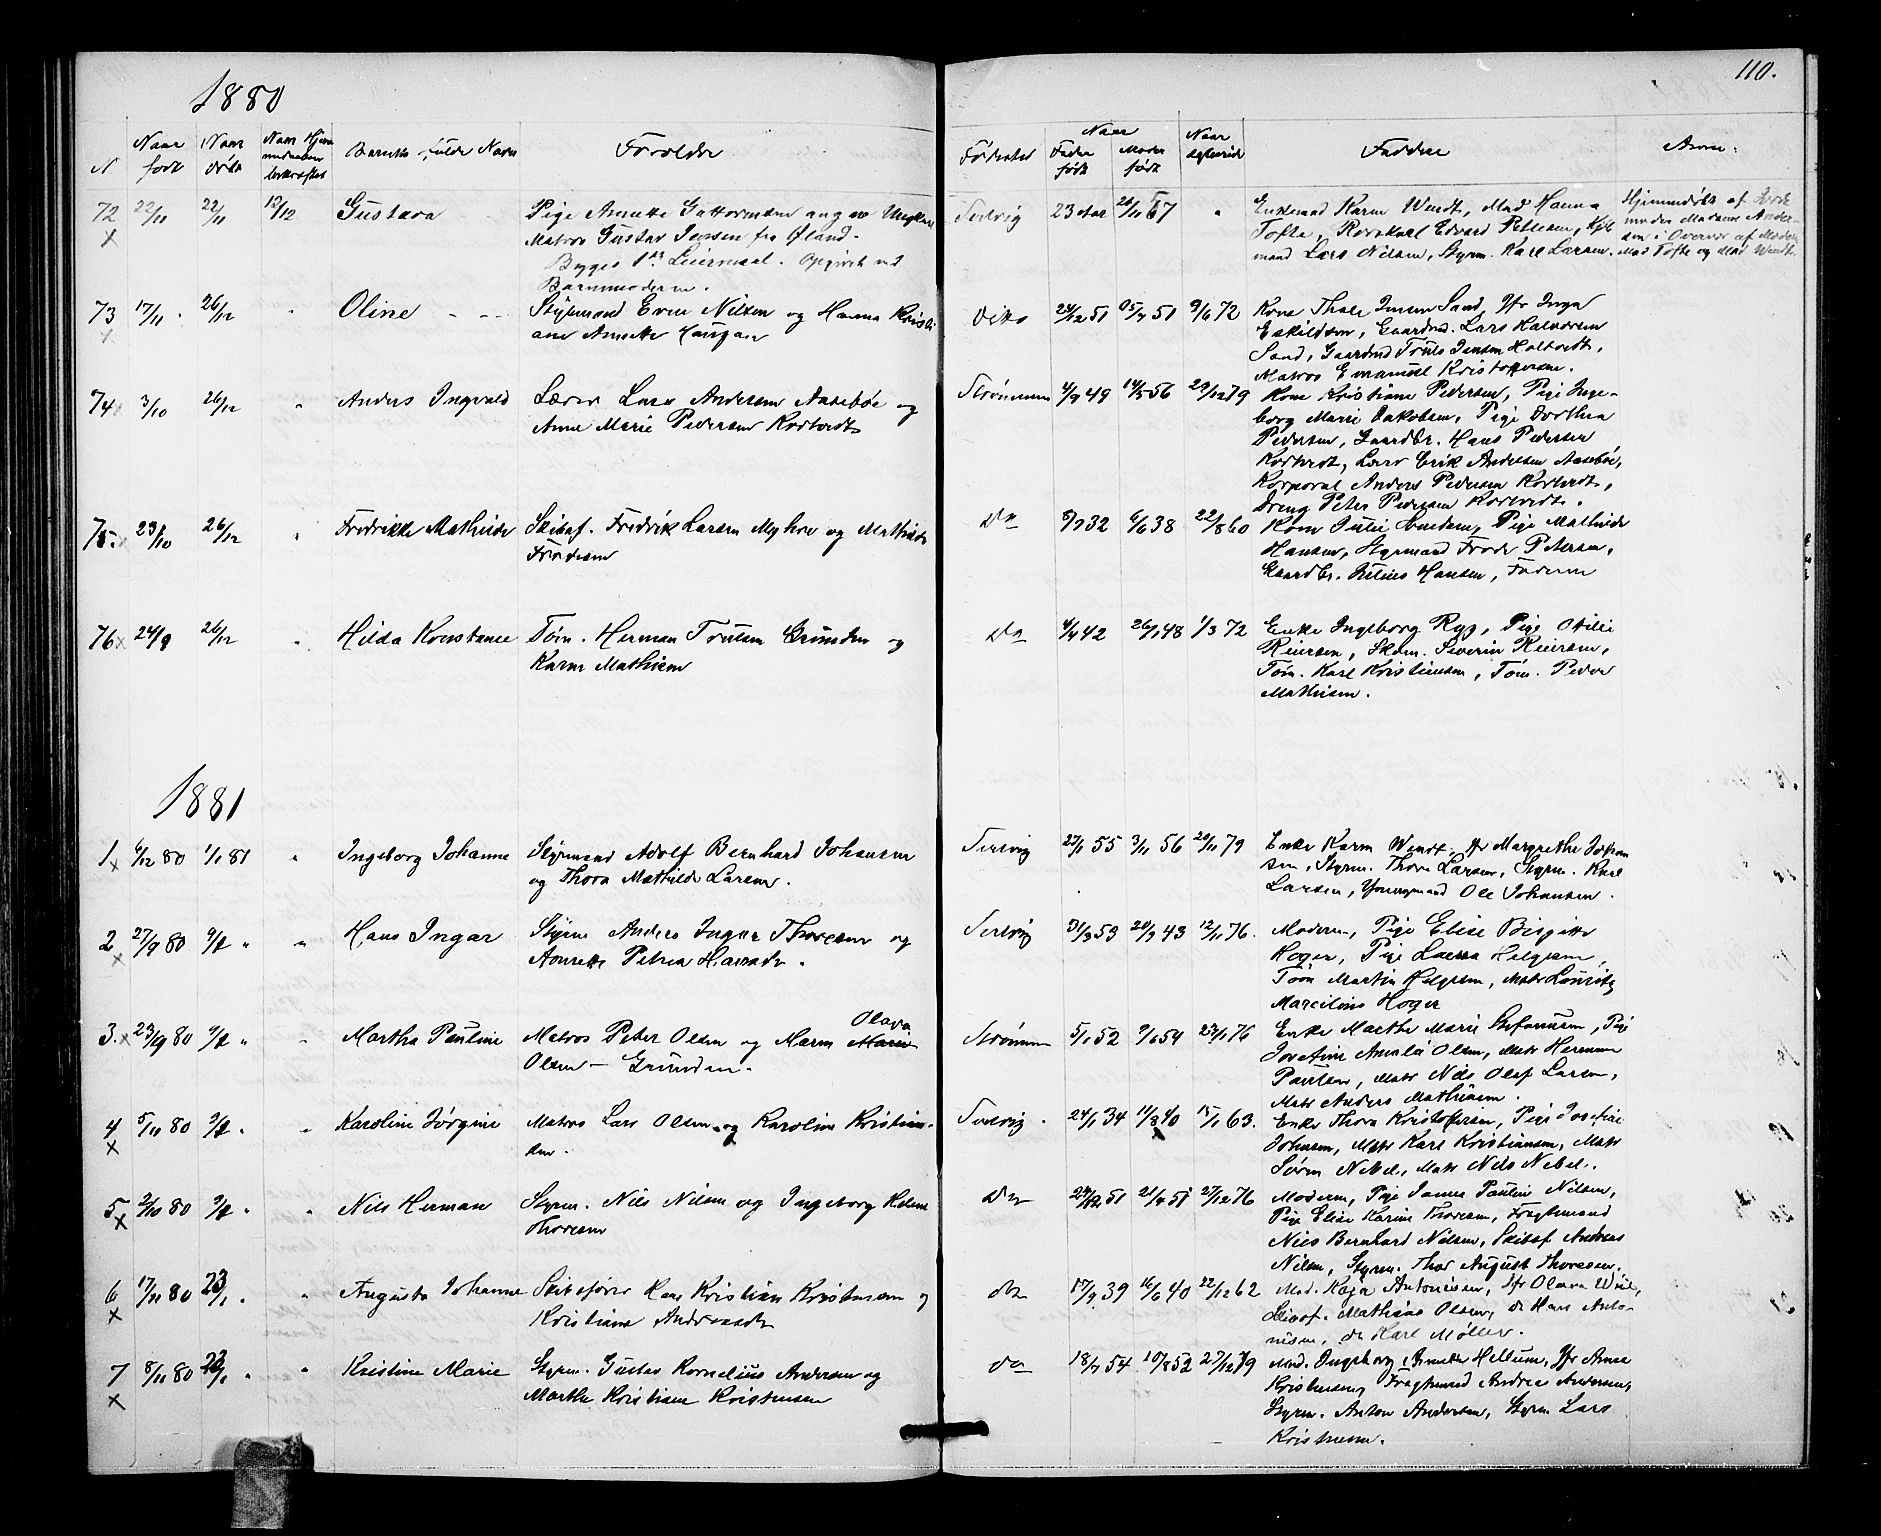 1880
110.
N
Naar født
Naar døbt
Naar Hjemmedaaben bekræftet
Barnets fulde Navn
Forældre
Fødested
Naar
Fader født
Moder født
Naar ægteviede
Faddere
Anm:
72 22/11 22/11 12/12 Gustava
Pige Annette Guttormsen ang. og Ungkarl
Matros Gustav Jensen fra Øland.
Begges 1ste Leiermaal. Opgivet ved
Barnemoderen.
Tved.vig 23 Aar
Enkemad Karen Wendt, Mad Hanna
Tofte, Rorskarl Edvard Pettersen,
mand Lars Nilsen, Styrm. Karl Larsen.
Hjemmedøbt af Jorde
moder Madame Ander-
sen i Overvær af Moder,
Mad Tofte og Mad Wendt.
73 17/11 26/12 Oline
Styrmand Even Nilsen og Hanna Kristi
ane Annette Haugan
Ditto 24/12 51 51 9/6 72
Kone Thale Jensen Sand, Jfr Inga
Eskildsen, Gaardmd. Lars Halvorsen
Sand, Gaardmd Truls Jensen Holtvedt,
Matros Emanuel Kristoffersen.
74 3/10 26/12 Anders Ingvald
Lærer Lars Andersen Aasebøe og
Anne Marie Pedersen Kortvedt
Strømmen 4/9 49 14/5 56 29/12 79
Kone Kristiane Pedersen, Pige Inge-
borg Marie Jakobsen, Pige Dorthea
Pedersen, Gaardbr. Hans Pedersen
Kortvedt, Lærer Erik Andersen Aasebøe,
Korporal Anders Pedersen Kortvedt,
Dreng Peter Pedersen Kortvedt.
75. 23/10 26/12 Fredrikke Mathilde
Skibsf. Fredrik Larsen Myhre og Mathilde
Frodesen
Do 8/7 32 6/6 38 22/8 60
Kone Julie Pige Mathilde
Hansen, Styrmand Frode Petersen,
Gaardbr. Julius Hansen, Faderen
76 24/9 26/12 Hilda Konstanse
Tøm. Herman Trulsen Grunden og
Karen Mathisen
Do 4/4 42 26/1 48 1/3 72
Enke Ingeborg Ryg, Pige Otilie
Reiersen, Skom. Severin Reiersen,
Tøm. Karl Kristiansen, Tøm. Peder
Mathisen.
1881
1 6/12 80 1/1 81 Ingeborg Johanne
Styrmand Adolf Bernhard Johansen
og Thora Mathilde Larsen.
27/1 55 3/11 56 20/11 79
Enke Karen Wendt, Jfr Margrethe Johan
sen, Styrm. Thora Larsen, Styrm. Karl
Larsen, Ole Johansen.
2 27/9 80 9/1 Hans Ingar
Styrm Anders Ingar Thoresen og
Annette Petrea
31/3 53 20/7 43 12/11 76.
Moderen, Pige Elise Birgitte
Høger, Pige Laura Helgesen,
Tøm Martin Helgesen, Matr Lauritz
Marcelius Høger
3. 23/9 80 9/1 Martha Pauline
Olava
Matros Peter Olsen og Maren Marie
Olsen — Grunden.
Strømmen 5/1 52 9/6 54 23/1 76
Enke Marthe Marie Stefansen, Pige
Josefine Amalie Olsen, Matr Herman
Paulsen, Matr Nils Olaf Larsen,
Matr Anders Mathisen.
4 5/11 80 9/1 Karoline Jørgine
Matros Lars Olsen og Karoline Kristian-
sen.
24/1 34 11/8 40 15/1 63.
Enke Thora Kristofersen, Pige Josefine
Johnsen, Matr Karl Kristiansen, Matr
Søren Nebel, Matr Nils Nebel.
5 2/10 80 9/1 Nils Herman
Styrm. Nils Nilsen og Ingeborg Helene
Thoresen
Do 24/12 51 21/4 51 27/12 76
Moderen, Pige Pauline Nilsen,
Pige Elise Karine Thoresen, Fragtemand
Nils Bernhard Nilsen, Skibsf Andreas
Nilsen, Styrm. Thor August Thoresen.
6 17/11 80 23/1 Augusta Johanne
Skibsfører Hans Kristian Kristensen og
Kristiane
do 17/9 39 16/6 40 22/12 62
Mad. Kaja Antonisen, Jfr Olava
Skibsf. Mathias Olsen, do Hans Anto-
nisen, do Karl Møller.
7 8/11 80 23/1 Kristine Marie
Styrm. Gustav Kornelius Andersen og
Marthe Kristiane Kristensen
do 18/7 54 10/8 52 27/12 79
Mad. Ingeborg Annette Hellum, Jfr Anna
Kristensen, Fragtemand Andreas Andersen,
Styrm. Anton Andersen, Styrm Lars
Kristensen.